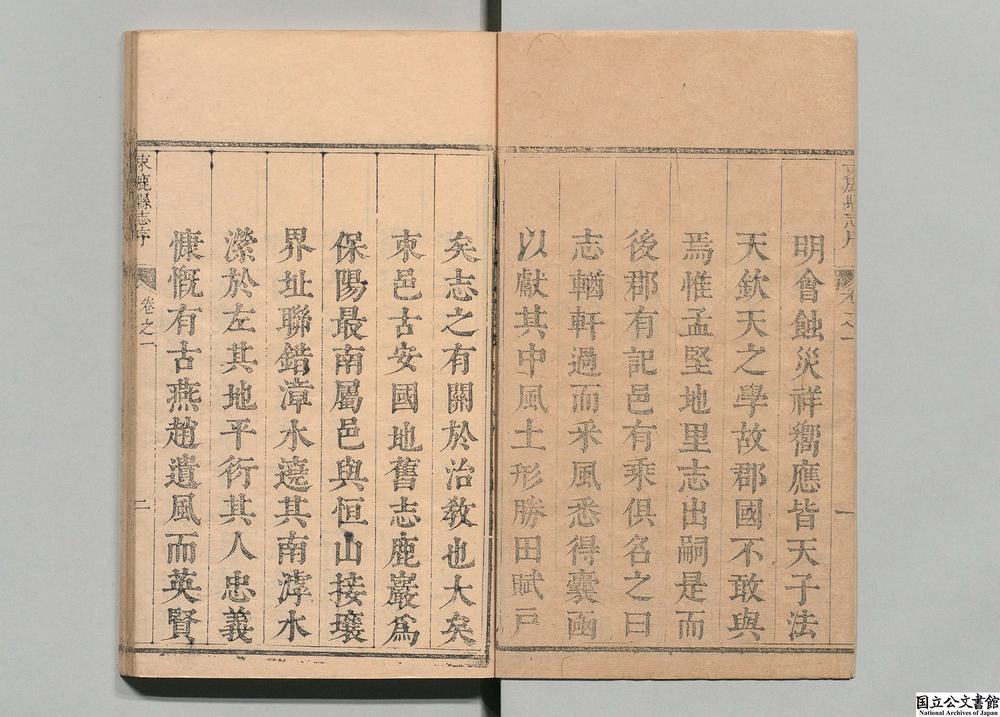 明會蝕災祥嚮應皆天子法
天欽天之學故郡國不敢與
焉惟孟堅地里志出嗣是而
後郡有記邑有乘俱名之曰
志輶軒過而采風悉得囊函
以獻其中風土形勝田賦戸
一
矣志之有關於治敎也大矣
束邑古安國地舊志鹿巖爲
保陽最南屬邑與恒山接壤
界址聯錯漳水遶其南滹水
瀠於左其地平衍其人忠義
慷慨有古燕趙遺風而英賢
束鹿縣志序
卷之一
二
国立公文書館
National Archives of Japan